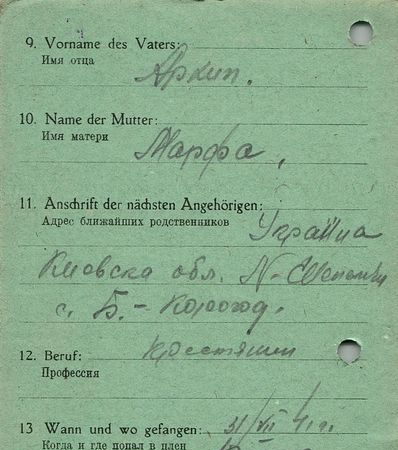 9. Vorname des Vaters:
Имя отца
Архип.
10. Name der Mutter:
Имя матери
Марфа,
11. Anschrift der nächsten Angehörigen:
Адрес ближайших родственников
Україна
Киевска обл. N-Шепелич
с. Б.-Корогод.
12. Beruf:
крестянин
Профессия
13 Wann und wo gefangen: 31/VII 41 г.
Когда и где попал в плен